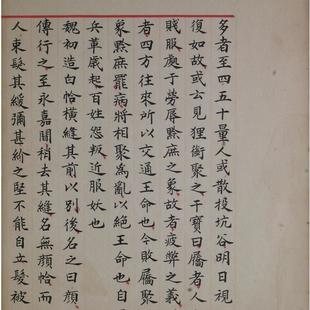 多者至四五十量人或散投坑谷明日視
復如故或亦見狸銜聚之干寶曰屩者人
賤服處于勞辱黔庶之象故者疲弊之義
者四方往來所以交通王命也今敗屩聚
象黔庶罷病將相聚為亂以絕王命也自
兵革歲起百姓怨叛近服妖也
魏初造白恰橫縫其前以別後名之曰顏
傳行之至永嘉間稍去其縫名無顏恰而
人束髮其緩彌甚紒之堅不能自立髮被